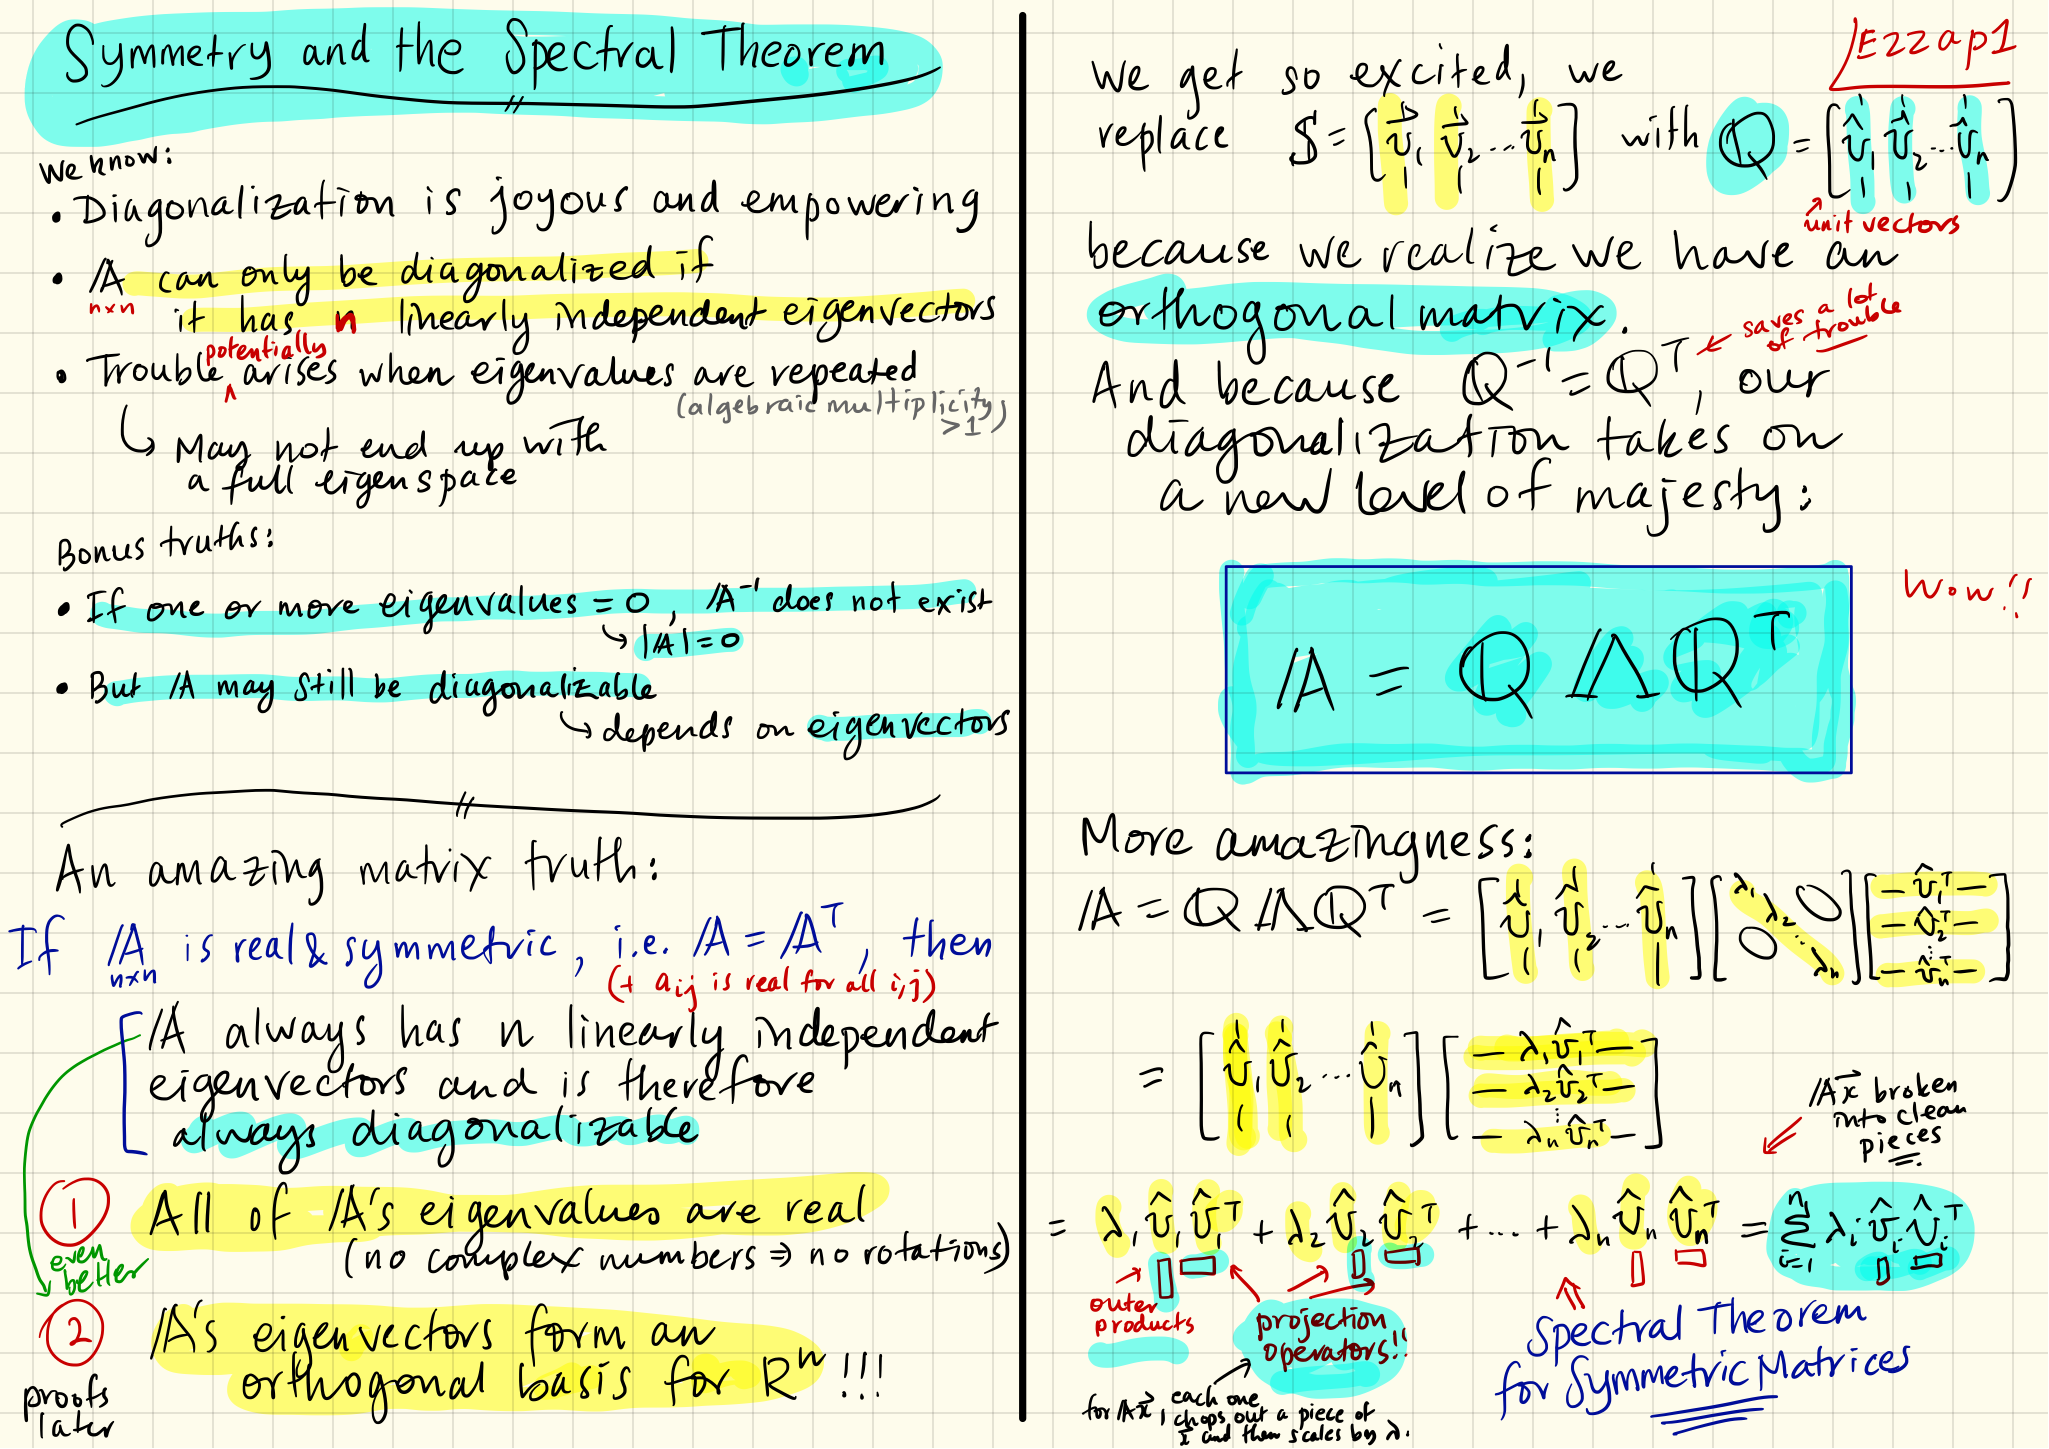 Symmetry and the Spectral Theorem
We know:
• Diagonalization is joyous and empowering
• A can only be diagonalized if
n×n
it has n linearly independent eigenvectors
potentially
• Trouble ^ arises when eigenvalues are repeated
(algebraic multiplicity > 1)
↳ May not end up with
a full eigenspace
Bonus truths:
• If one or more eigenvalues = 0, A⁻¹ does not exist
↳ |A| = 0
• But A may still be diagonalizable
↳ depends on eigenvectors
An amazing matrix truth:
If A is real & symmetric, i.e. A = Aᵀ, then
n×n
(+ aᵢⱼ is real for all i,j)
A always has n linearly independent
eigenvectors and is therefore
always diagonalizable
① All of A's eigenvalues are real
(no complex numbers ⇒ no rotations)
even
better
② A's eigenvectors form an
orthogonal basis for Rⁿ !!!
proofs
later
Ezzap1
We get so excited, we
replace S = [v⃗₁ v⃗₂ ... v⃗ₙ] with Q = [v̂₁ v̂₂ ... v̂ₙ]
unit vectors
because we realize we have an
orthogonal matrix.
saves a lot
of trouble
And because Q⁻¹ = Qᵀ, our
diagonalization takes on
a new level of majesty:
A = Q Λ Qᵀ
Wow!!
More amazingness:
A = Q Λ Qᵀ = [v̂₁ v̂₂ ... v̂ₙ] [λ₁ λ₂ ... λₙ 0 0] [— v̂₁ᵀ — — v̂₂ᵀ — ⋮ — v̂ₙᵀ —]
= [v̂₁ v̂₂ ... v̂ₙ] [— λ₁v̂₁ᵀ — — λ₂v̂₂ᵀ — ⋮ — λₙv̂ₙᵀ —]
Ax⃗ broken
into clean
pieces
= λ₁ v̂₁ v̂₁ᵀ + λ₂ v̂₂ v̂₂ᵀ + ... + λₙ v̂ₙ v̂ₙᵀ = Σᵢ₌₁ⁿ λᵢ v̂ᵢ v̂ᵢᵀ
outer
products
projection
operators!!
for Ax⃗, each one
chops out a piece of
x⃗ and then scales by λ.
Spectral Theorem
for Symmetric Matrices